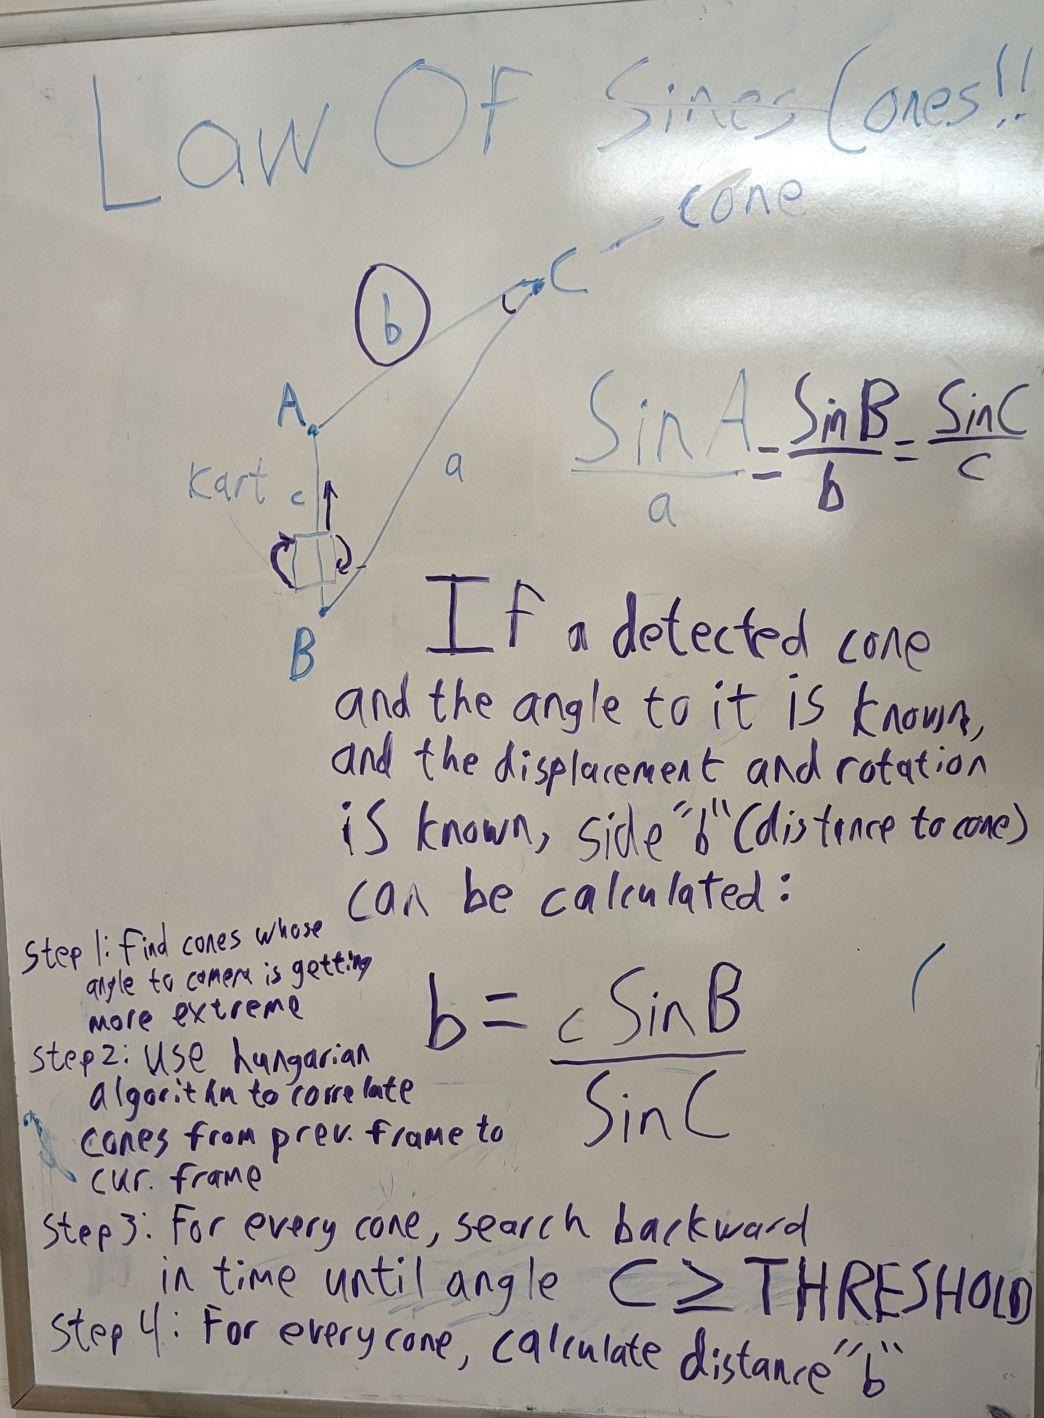 Law Of Sines Cones!!
cone
C
b
A
a
Kart
c
B
Sin A / a = Sin B / b = Sin C / c
If a detected cone
and the angle to it is known,
and the displacement and rotation
is known, side "b" (distance to cone)
can be calculated:
b = c Sin B / Sin C
Step 1: Find cones whose
angle to camera is getting
more extreme
Step 2: Use hungarian
algorithm to correlate
cones from prev. frame to
cur. frame
Step 3: For every cone, search backward
in time until angle C ≥ THRESHOLD
Step 4: For every cone, calculate distance "b"